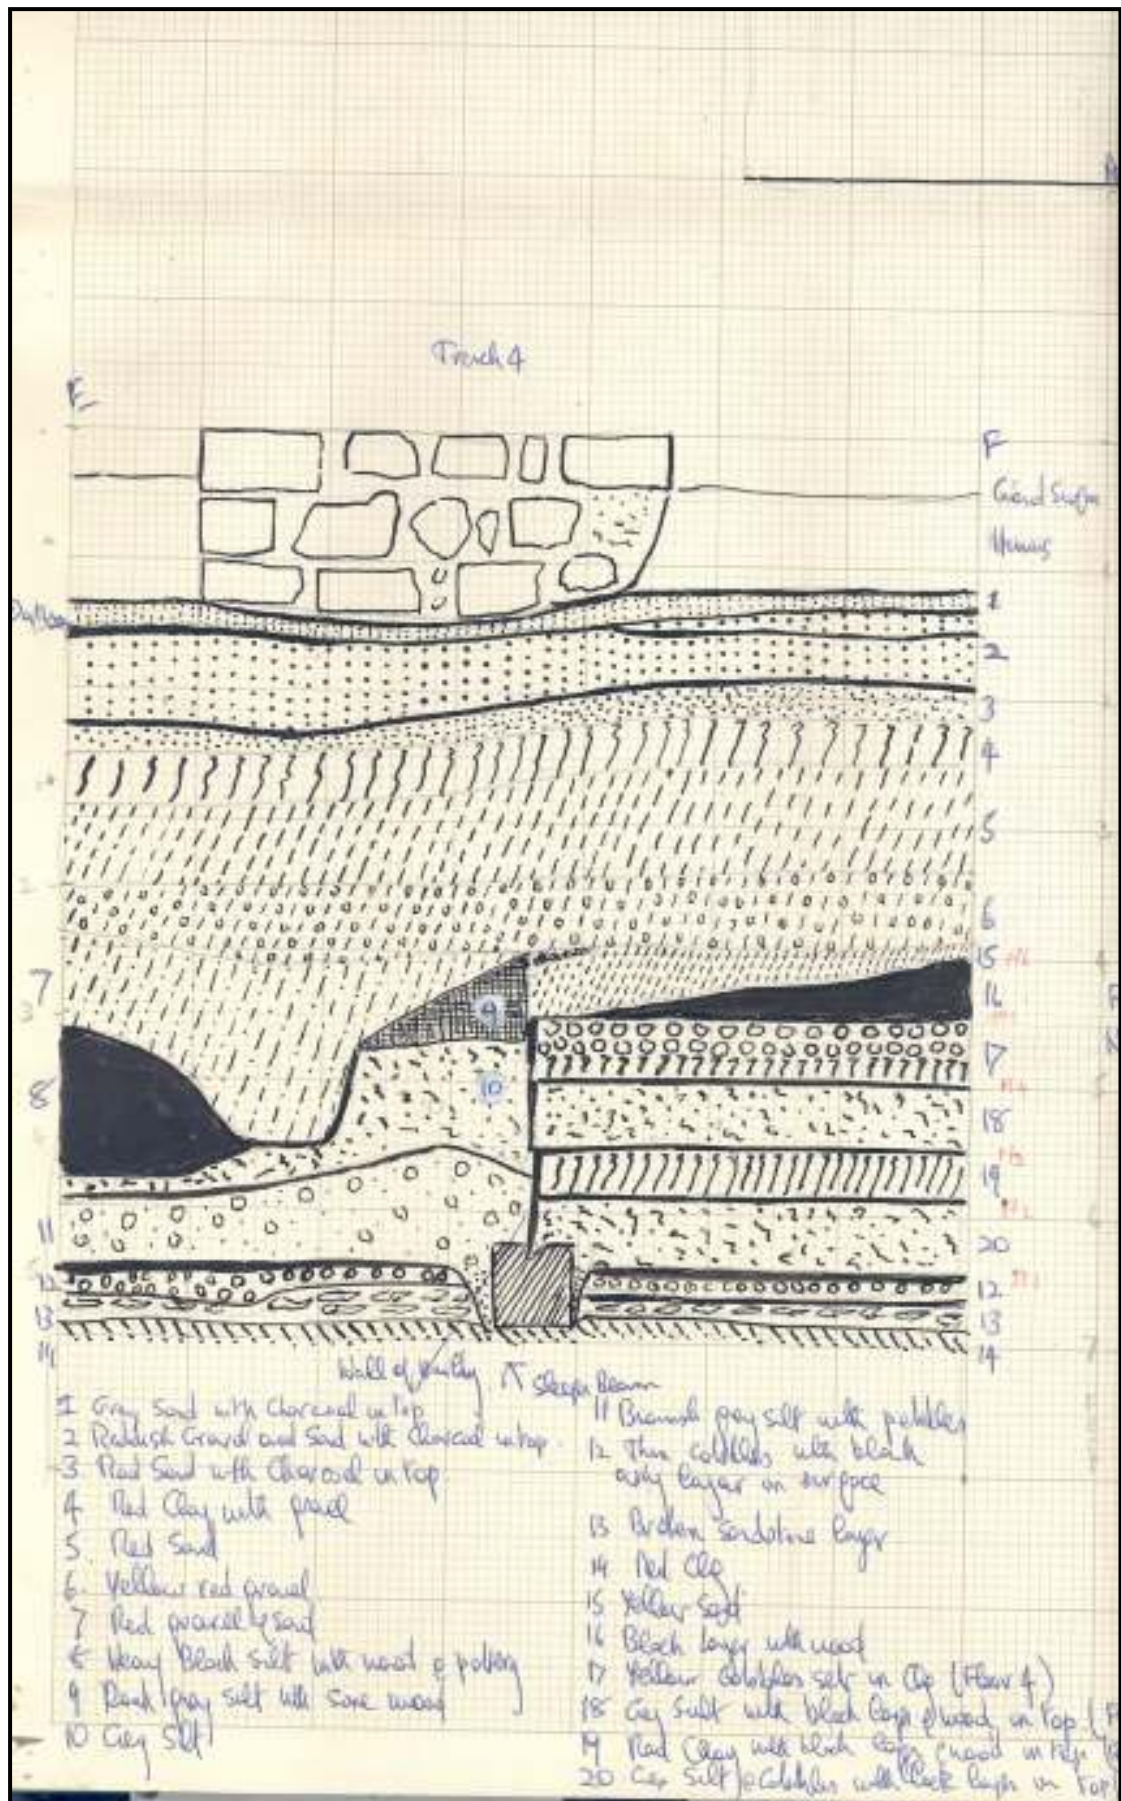 Trench 4
E
F
Ground Surface
Humus
1
2
3
4
5
6
15
7
16
9
17
10
8
18
19
11
20
12
12
13
13
14
14
Wall of Building
Sleeper Beam
1 Grey Sand with Charcoal in top
2 Reddish Gravel and Sand with Charcoal in top.
3 Red Sand with Charcoal in top.
4 Red Clay with gravel
5 Red Sand
6. Yellow red gravel
7 Red gravel & sand
8 Heavy Black silt with wood & pottery
9 grey silt with some wood
10 Grey Silt
11 Brownish grey silt with pebbles
12 Thin cobbles with black
layer on surface
13 Broken sandstone layer
14 Red Clay
15 Yellow Sand
16 Black layer with wood
17 Yellow cobbles set in Clay (Floor 4)
18 Grey Silt with black layer & wood in top (F
19 Red Clay with black layer & wood in top
20 Grey Silt & Cobbles with black layer in top